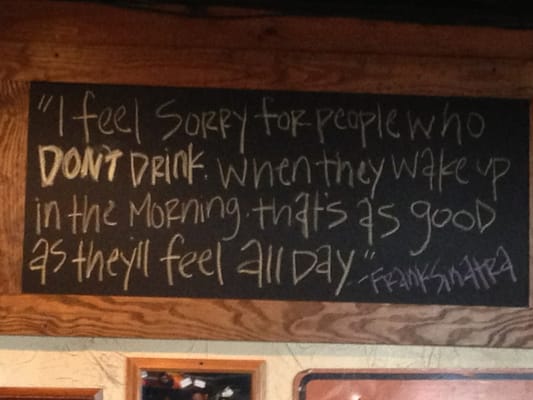 "I feel SORRY for people who
DON'T DRINK. When they wake up
in the Morning. that's as good
as they'll feel all DAY"
-FRANK SINatRA